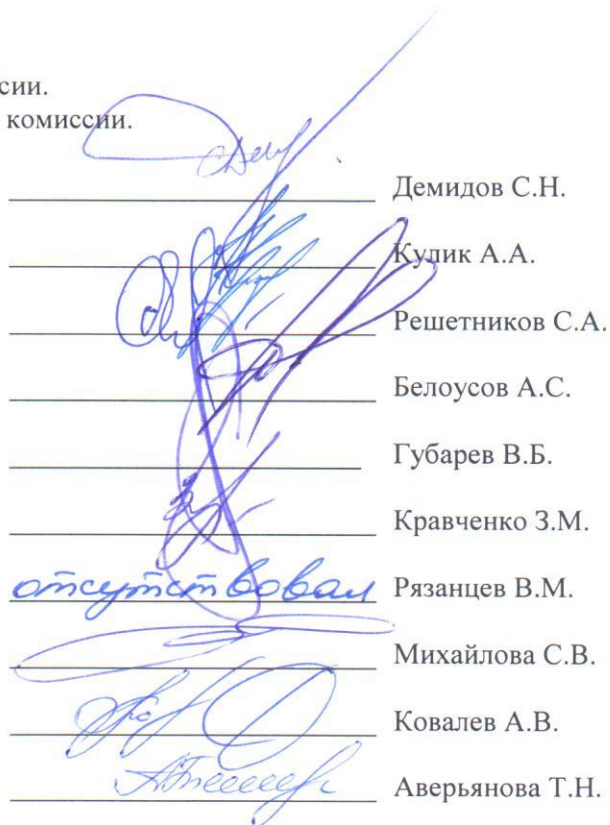 сии.
комиссии.
Демидов С.Н.
Кулик А.А.
Решетников С.А.
Белоусов А.С.
Губарев В.Б.
Кравченко З.М.
отсутствовал Рязанцев В.М.
Михайлова С.В.
Ковалев А.В.
Аверьянова Т.Н.